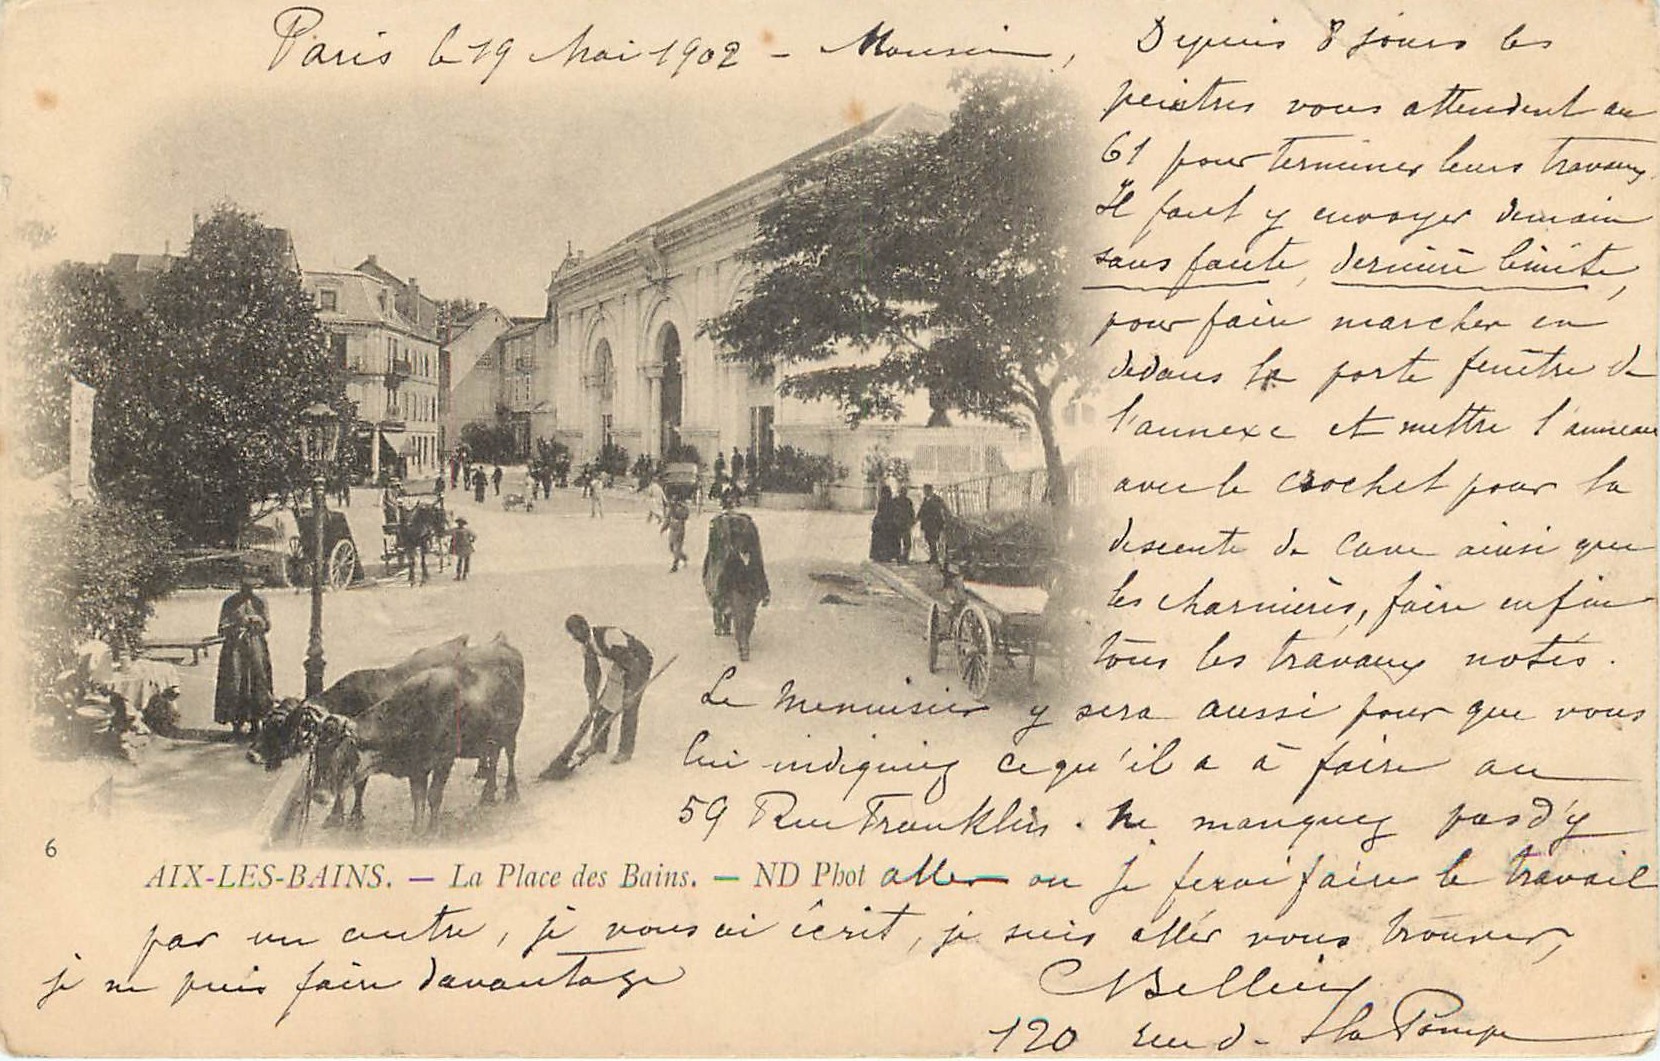 Paris le 19 Mai 1902 - Monsieur,
Depuis 8 jours les
peintres vous attendent au
61 pour terminer leurs travaux.
Il faut y envoyer demain
sans faute, dernière limite,
pour faire marcher en
dedans la porte fenêtre de
l'annexe et mettre l'anneau
avec le crochet pour la
descente de cave ainsi que
les charnières, faire enfin
tous les travaux notés.
Le Menuisier y sera aussi pour que vous
lui indiquiez ce qu'il a à faire au
59 Rue Franklin. Ne manquez pas d'y
6
AIX-LES-BAINS. — La Place des Bains. — ND Phot
aller ou je ferai faire le travail
par un autre, je vous ai écrit, je suis allé vous trouver,
je ne puis faire davantage
120 rue de la Pompe